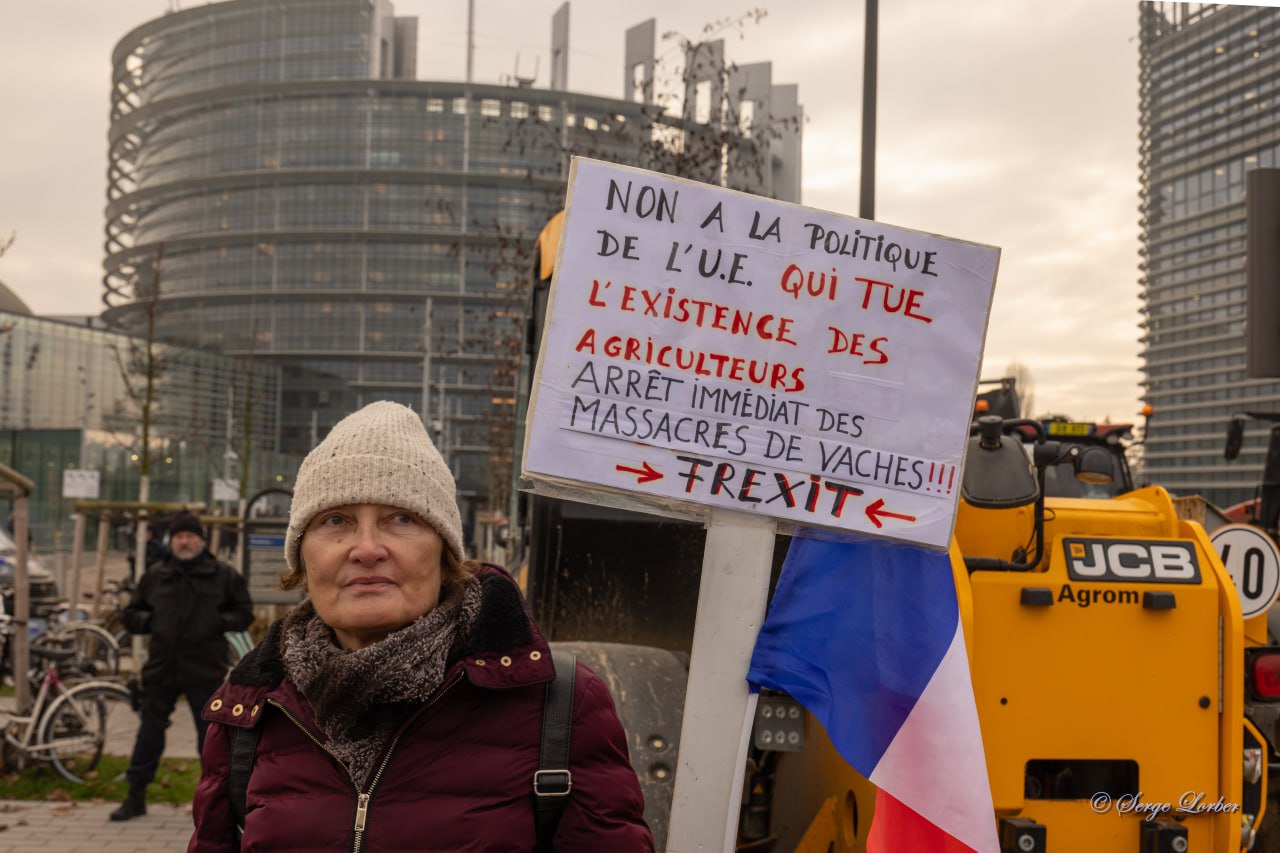 NON A LA POLITIQUE
DE L'U.E. QUI TUE
L'EXISTENCE DES
AGRICULTEURS
ARRÊT IMMÉDIAT DES
MASSACRES DE VACHES!!!
→ FREXIT ←
JCB
Agrom
40
© Serge Lorber